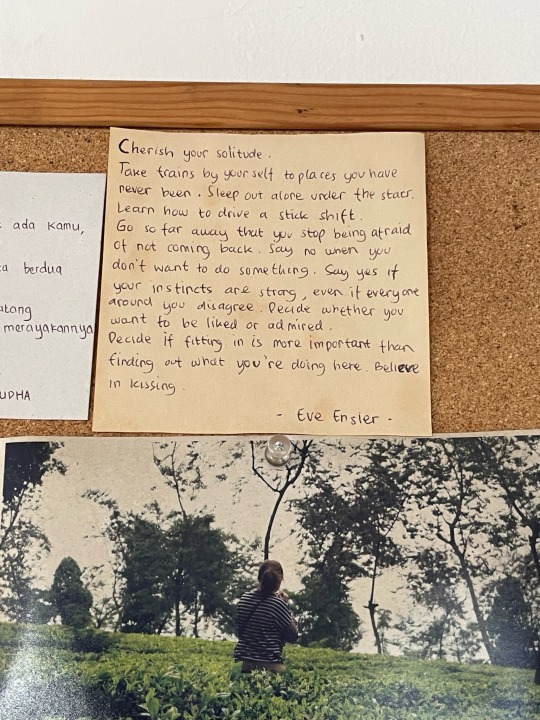 ada kamu,
berdua
merayakannya
Cherish your solitude.
Take trains by yourself to places you have
never been. Sleep out alone under the stars.
Learn how to drive a stick shift.
Go so far away that you stop being afraid
of not coming back. Say no when you
don't want to do something. Say yes if
your instincts are strong, even if everyone
around you disagree. Decide whether you
want to be liked or admired.
Decide if fitting in is more important than
finding out what you're doing here. Believe
in kissing.
- Eve Ensler -